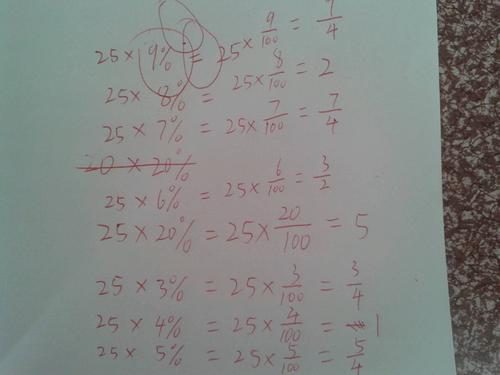 25 × 9% = 25 × 9/100 = 9/4
25 × 8% = 25 × 8/100 = 2
25 × 7% = 25 × 7/100 = 7/4
20 × 20%
25 × 6% = 25 × 6/100 = 3/2
25 × 20% = 25 × 20/100 = 5
25 × 3% = 25 × 3/100 = 3/4
25 × 4% = 25 × 4/100 = 1
25 × 5% = 25 × 5/100 = 5/4